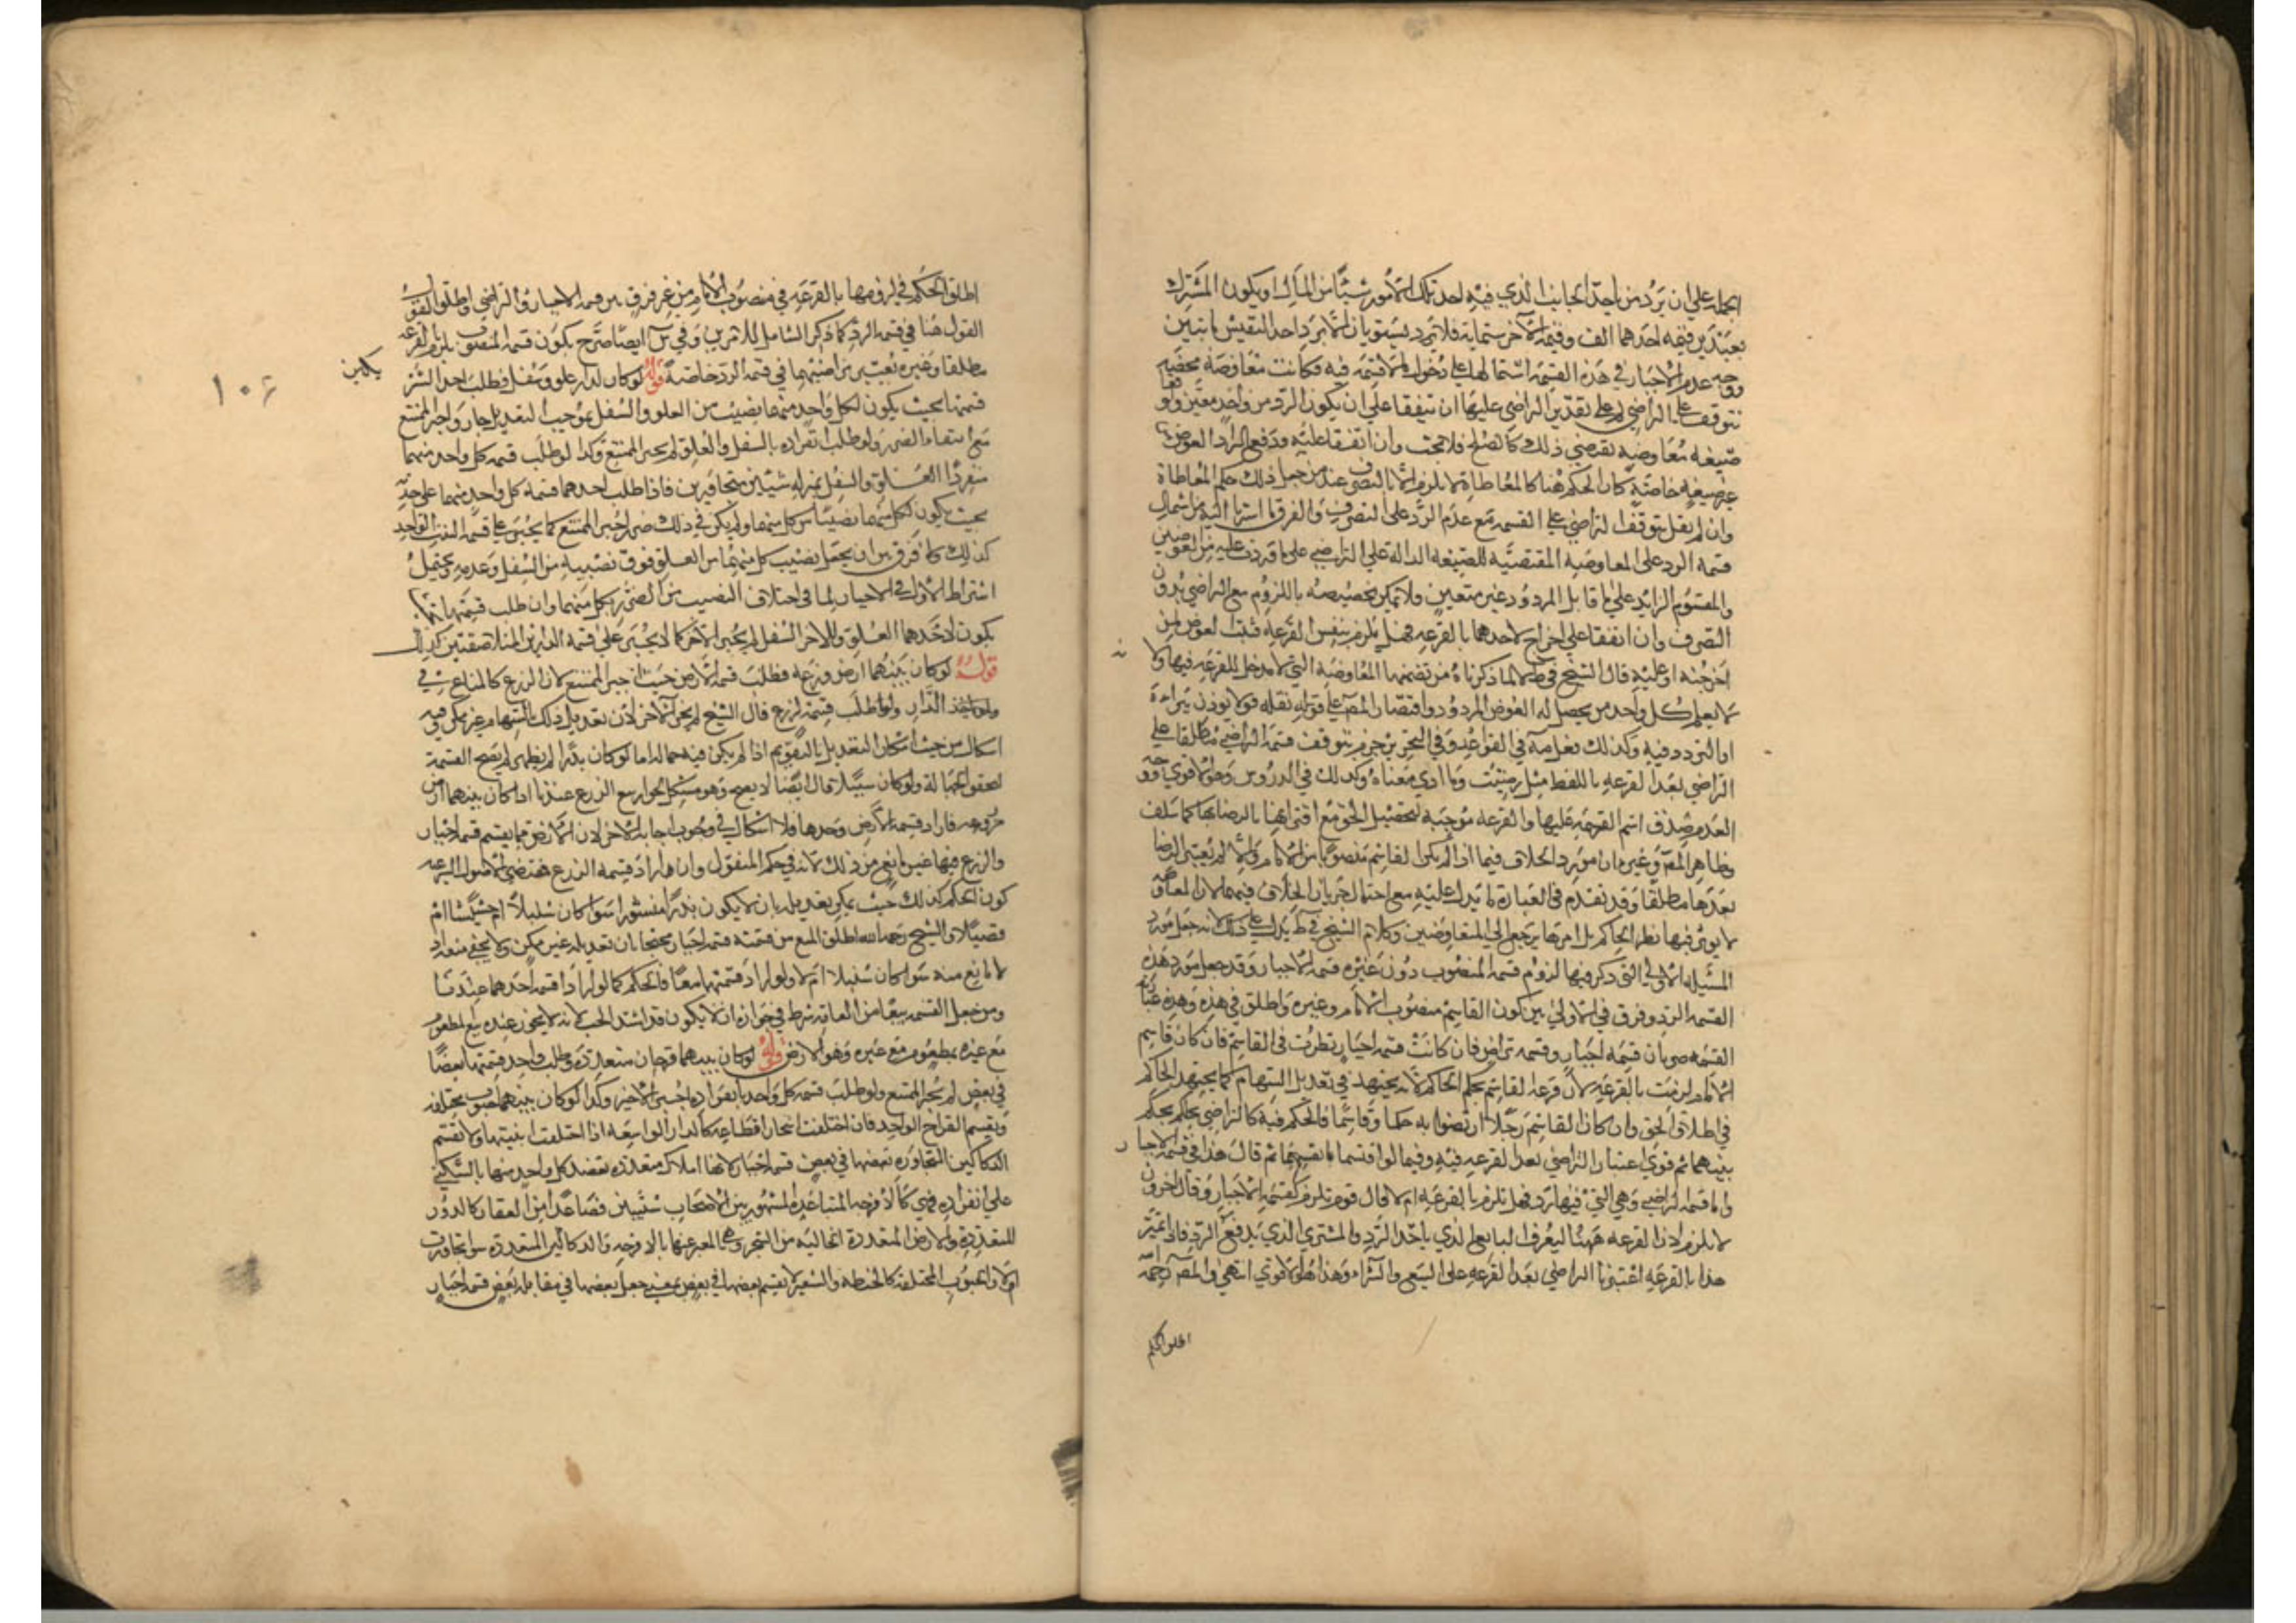 الجملة على ان يرد من ياخذ الجانب الذي فيه احد تلك الامور شيئا من المال او يكون المشترك
بعبدين قيمة احدهما الف وقيمة الآخر ستماية فلا يستويان الا برد احد النفيس مايتين
ووجه عدم الاجبار في هذه القسمة اشتمالها على دخول ما لا قسمة فيه فكانت معاوضة محضة
تتوقف على التراضي ثم على تقدير التراضي عليها ان يتفقا على ان يكون الرد من واحد معين
صيغة معاوضية تقتضي ذلك كالصلح فلا بحث وان اتفقا عليه ودفع الراد العوض
صيغة خاصة كان الحكم هنا كالمعاطاة لا يلزم الا بالتصرف عند من جعل ذلك حكم المعاطاة
وان لم نقل بتوقف التراضي على القسمة مع عدم الرد على التصرف والفرق ما اشرنا اليه من اشتمال
قسمة الرد على المعاوضة المقتضية للصيغة الدالة على التراضي على ما وردت عليه من العوضين
والمقسوم الزايد على ما قابل المردود غير متعين ولا يمكن تخصيصه باللزوم مع التراضي بدون
التصرف وان اتفقا على اخراج احدهما بالقرعة فهل يلزم بنفس القرعة فيثبت العوض لمن
اخرجته او عليه قال الشيخ في ط لا لما ذكرناه من تضمنها المعاوضة التي لا مدخل للقرعة فيها ولا
لا يعلم كل واحد من يحصل له العوض المردود واقتصار المص على قوله نقله قولا يوذن
او التردد فيه وكذلك فعل مة في القواعد وفي التحرير جزم بتوقف قسمة التراضي مطلقا على
التراضي بعد القرعة باللفظ مثل رضيت وما ادى معناه وكذلك في الدروس وهو الاقوى
العدم صدق اسم القرعة عليها والقرعة موجبة لتحصيل الحق مع اقترانها بالرضا بها كما سلف
وظاهر المص وغيره ان مورد الخلاف فيما اذا لم يكن القاسم منصوبا من الامام والا لم يعتبر الرضا
بعدها مطلقا وقد تقدم في العبارة ما يدل عليه مع احتمال جريان الخلاف فيهما لان المعاوضة
لا يوثر فيها نظر الحاكم بل امرها يرجع الى المتعاوضين وكلام الشيخ في ط يدل على ذلك لانه جعل مورد
المسئلة الاولى التي ذكر فيها لزوم قسمة المنصوب دون غيره قسمة الاجبار وقد جعل مورد هذه
القسمة الرد وفرق في الاولى بين كون القاسم منصوب الامام وغيره واطلق في هذه وهذه عبارته
القسمة ضربان قسمة اجبار وقسمة تراض فان كانت قسمة اجبار نظرت في القاسم فان كان قاسم
الامام لزمت بالقرعة لان قرعة القاسم بحكم الحاكم لانه يجتهد في تعديل السهام كما يجتهد الحاكم
في اطلاق الحق وان كان القاسم رجلا ارتضوا به حكما وقاسما فالحكم فيه كالتراضي بحاكم يحكم
بينهما ثم قوى اعتبار التراضي بعد القرعة فيه وفيما لو اقتسما بانفسهما ثم قال هذا في قسمة الاجبار
واما قسمة التراضي وهي التي فيها رد فهل تلزم بالقرعة ام لا قال قوم تلزم كقسمة الاجبار وقال اخرون
لا يلزم لان القرعة ههنا ليعرف البايع الذي ياخذ الرد والمشتري الذي يدفع الرد فاذا تميز
هذا بالقرعة اعتبرنا التراضي بعد القرعة على البيع والشراء وهذا هو الاقوى انتهى والمص رحمه
اطلق الحكم
١٠٦
اطلق الحكم في لزومها بالقرعة في منصوب الامام من غير فرق بين قسمة الاجبار والتراضي
القول هنا في قسمة الرد كما ذكر الشامل للامرين وفي س ايضا صرح بكون قسمة المنصوب يلزم بالقرعة
مطلقا وغيره يعتبر تراضيهما في قسمة الرد خاصة قوله لو كان لدار علو وسفل فطلب احد الشريكين
قسمتها بحيث يكون لكل واحد منهما نصيب من العلو والسفل بموجب التعديل جاز واجبر الممتنع
مع انتفاء الضرر ولو طلب انفراده بالسفل والعلو لم يجبر الممتنع وكذا لو طلب قسمة كل واحد منهما
منفردا العلو والسفل بمنزلة شيئين متجاورين فاذا طلب احدهما قسمة كل واحد منهما على حدته
بحيث يكون لكل منهما نصيبا من كل منهما ولم يكن في ذلك ضرر اجبر الممتنع كما يجبر على قسمة الواحد
كذلك ولا فرق بين ان يجعل نصيب كل منهما من العلو فوق نصيبه من السفل وعدمه ويحتمل
اشتراط الاول في الاجبار لما في اختلاف النصيب من الضرر بكل منهما وان طلب قسمتها
يكون لاحدهما العلو وللاخر السفل لم يجبر الآخر كما لا يجبر على قسمة الدارين المتلاصقتين كذلك
قوله لو كان بينهما ارض وزرع فطلب قسمة الارض حسب اجبر الممتنع لان الزرع كالمتاع في
الدار ولو طلب قسمة الزرع قال الشيخ لم يجبر الآخر لان تعديل ذلك بالسهام غير ممكن وفيه
اشكال من حيث امكان التعديل بالتقويم اذا لم يكن فيه جهالة اما لو كان بذرا لم يظهر لم تصح القسمة
لتحقق الجهالة ولو كان سنبلا قال ايضا لا يصح وهو مشكل لجواز بيع الزرع عندنا اذا كان بينهما ارض
مزروعة فاراد قسمة الارض وحدها فلا اشكال في وجوب اجابة الآخر لان الارض مما يقسم قسمة اجبار
والزرع فيها غير مانع من ذلك لانه في حكم المنقول وان اراد قسمة الزرع فمقتضى الاصول الشرعية
كون الحكم كذلك حيث يمكن تعديله بان لا يكون بذرا منشورا سوا كان سنبلا ام حشيشا ام
قصيلا والشيخ رحمه الله اطلق المنع من قسمته قسمة اجبار محتجا بان تعديله غير ممكن ولا يخفى منعه اذ
لا مانع منه سوا كان سنبلا ام لا ولو اراد قسمتهما معا فالحكم كما لو اراد قسمة احدهما عندنا
ومن جعل القسمة بيعا من العامة شرط في جوازه ان لا يكون قد اشتد الحب لانه لا يجوز عنده بيع المطعوم
مع غيره بمطعوم مع غيره وهو الارض قوله لو كان بينهما قرحان متعددة وطلب واحد قسمتها بعضا
في بعض لم يجبر الممتنع ولو طلب قسمة كل واحد بانفراده اجبر الآخر وكذا لو كان بينهما حبوب مختلفة
ويقسم القراح الواحد وان اختلفت اشجار اقطاعه كالدار الواسعة اذا اختلفت ابنيتها ولا تقسم
الدكاكين المتجاورة بعضها في بعض قسمة اجبار لانها املاك متعددة يقصد كل واحد منها بالسكنى
على انفراده فهي كالاقرحة المتباعدة المشهور بين الاصحاب شيئين فصاعدا من العقار كالدور
المتعددة والارض المتعددة الخالية من الشجر وهي المعبر عنها بالاقرحة والدكاكين المتعددة سوا تجاورت
ام لا والحبوب المختلفة كالحنطة والشعير لا يقسم بعضها في بعض بمعنى جعل بعضها في مقابلة بعض قسمة اجبار